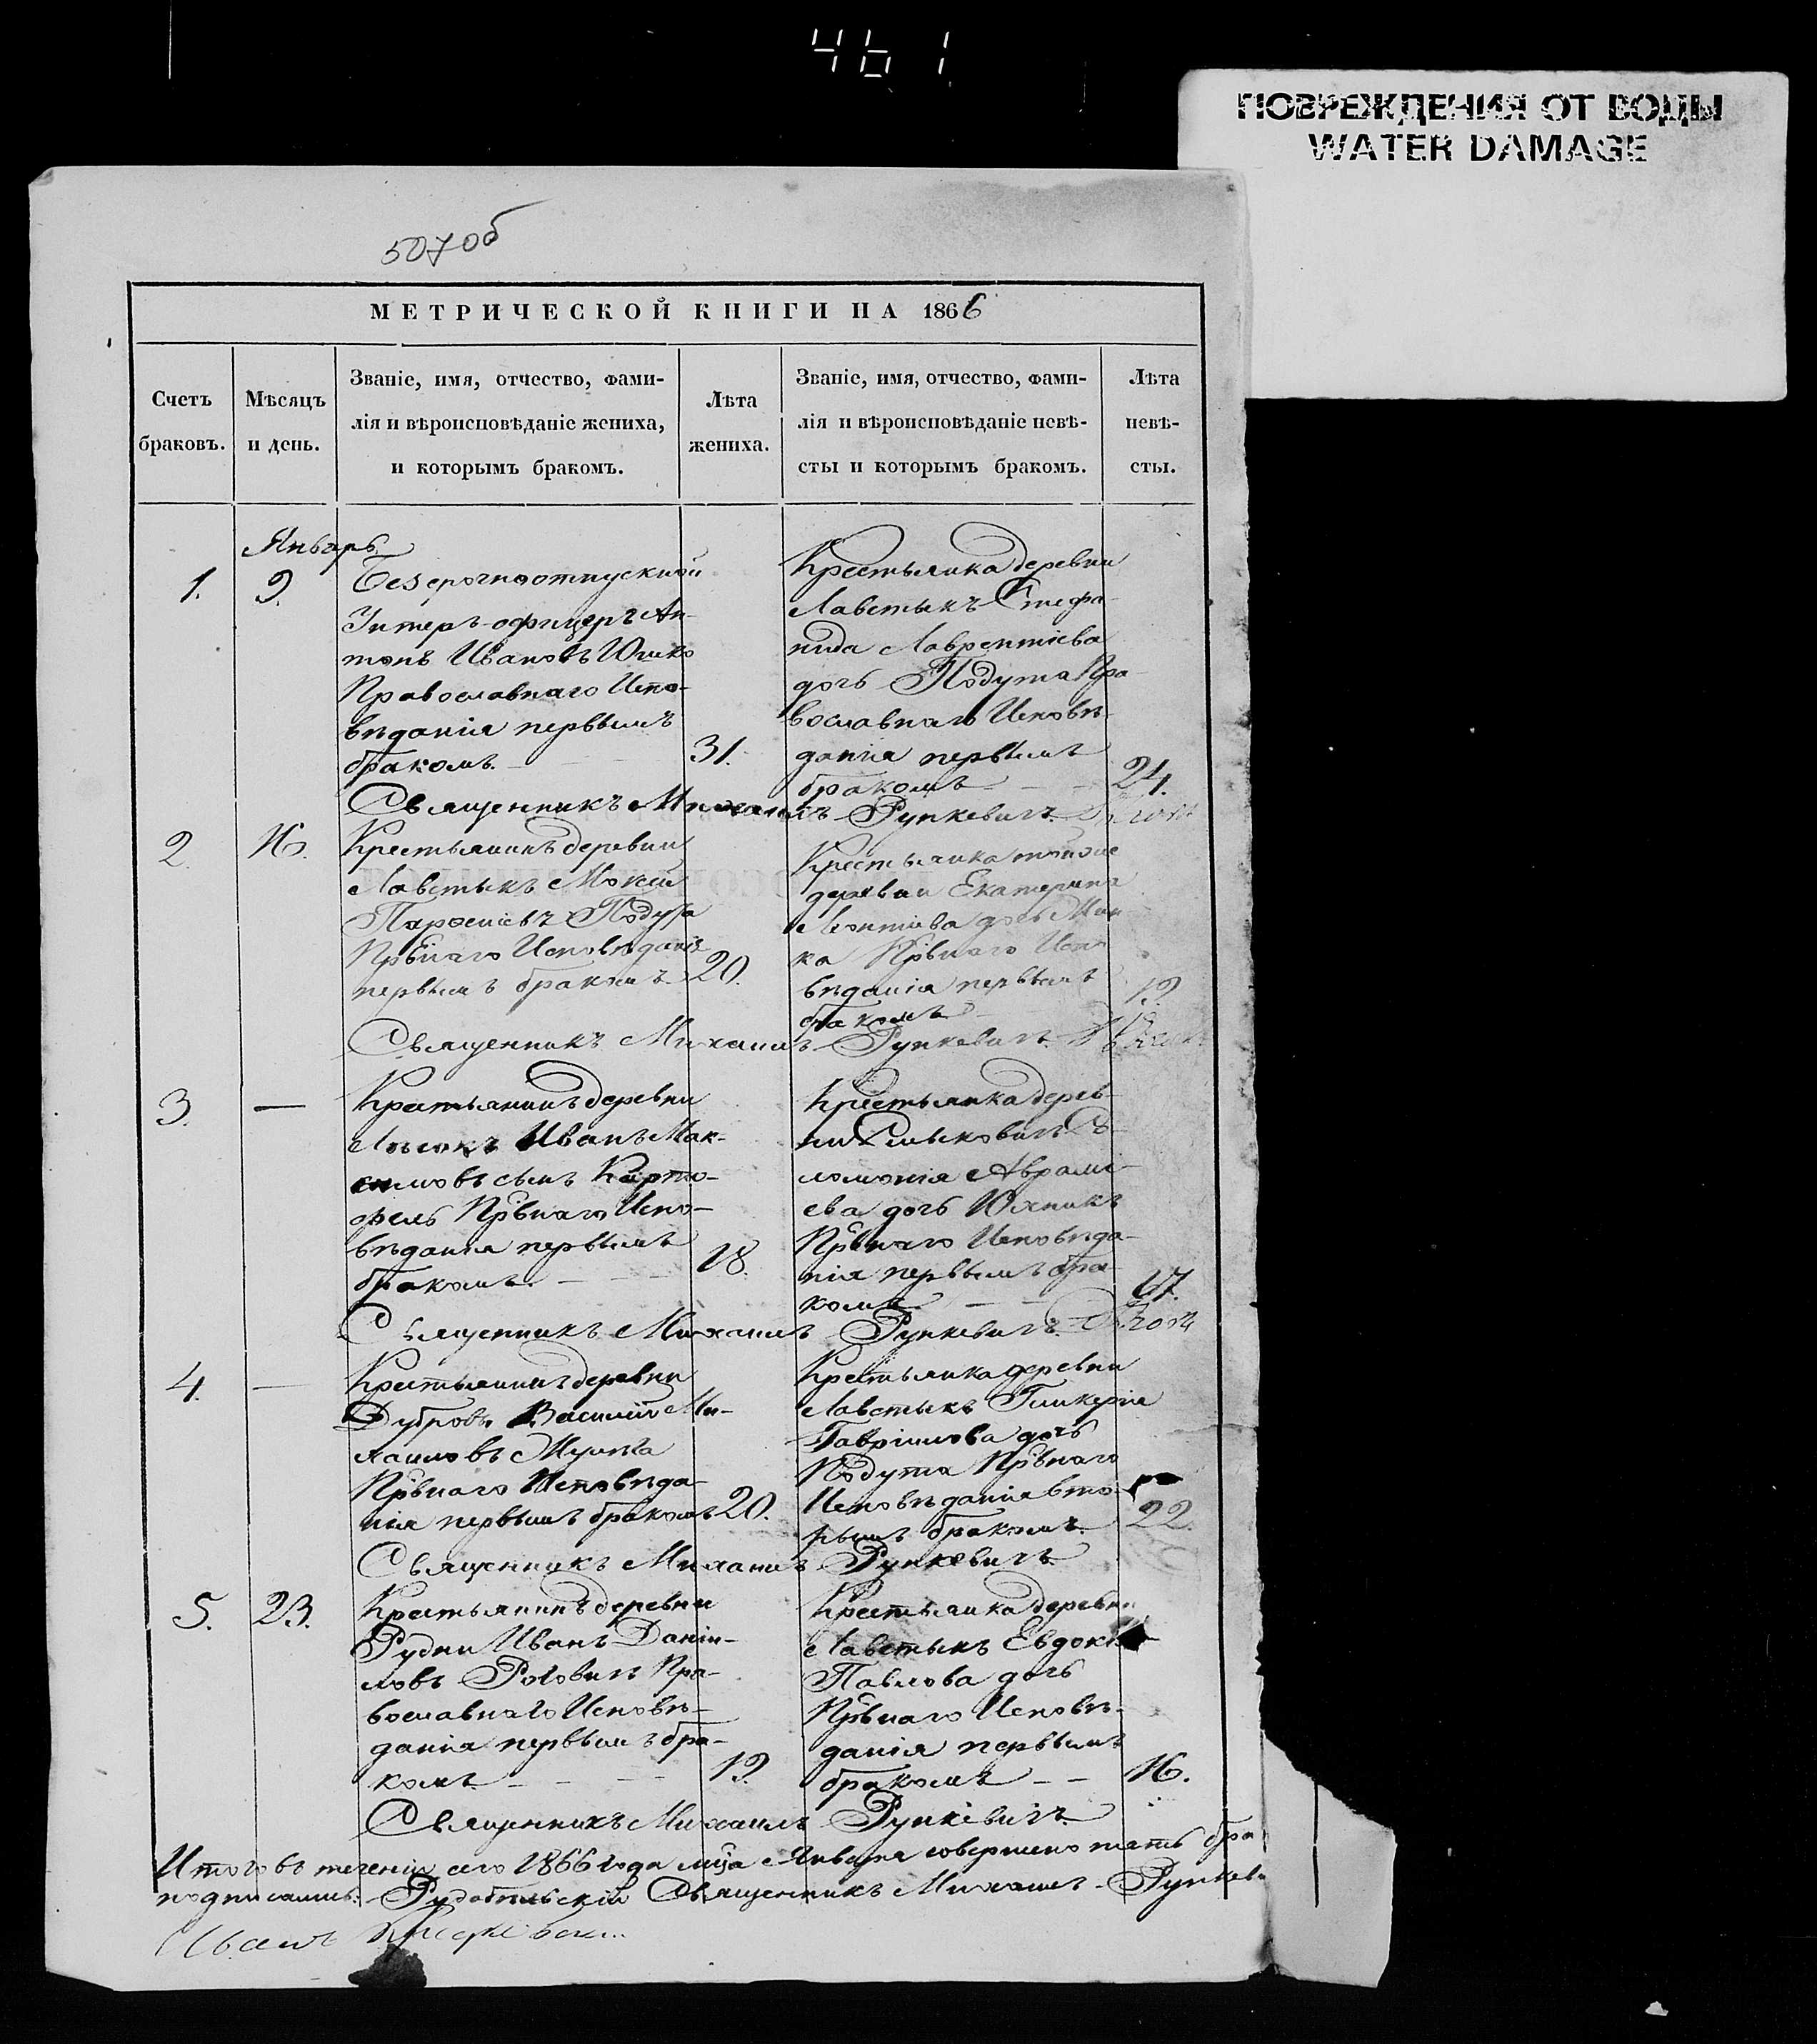 461
ПОВРЕЖДЕНИЯ ОТ ВОДЫ
WATER DAMAGE
507об
МЕТРИЧЕСКОЙ КНИГИ НА 1866
Счетъ браковъ.
Мѣсяцъ и день.
Званіе, имя, отчество, фами-
лія и вѣроисповѣданіе жениха,
и которымъ бракомъ.
Лѣта жениха.
Званіе, имя, отчество, фами-
лія и вѣроисповѣданіе невѣ-
сты и которымъ бракомъ.
Лѣта невѣ-
сты.
Январь
1. 9.
Безсрочноотпускной
Унтеръ-офицеръ Ан-
тонъ Ивановъ Юшко
Православнаго Испо-
вѣданія первымъ
бракомъ. 31.
Крестьянка деревни
Лавстыкъ Стефа-
нида Лаврентіева
дочь Подута Пра-
вославнаго Исповѣ-
данія первымъ
бракомъ 24.
Священникъ Михаилъ Рункевичъ
2. 16.
Крестьянинъ деревни
Лавстыкъ Мокей
Парѳеніевъ Подута
Прв̃наго Исповѣданія
первымъ бракомъ 20.
Крестьянка тойже
деревни Екатерина
Леонтіева дочь
ка Прв̃наго Испо
вѣданія первымъ
бракомъ 19.
Священникъ Михаилъ Рункевичъ
3. —
Крестьянинъ деревни
Иванъ Мак-
симовъ сынъ Карто-
фель Прв̃наго Испо-
вѣданія первымъ
бракомъ. 18.
Крестьянка дерев-
ни Со-
ломонія Аврамі-
ева дочь Юхникъ
Прв̃наго Исповѣда-
нія первымъ бра-
комъ 17.
Священникъ Михаилъ Рункевичъ
4. —
Крестьянинъ деревни
Дубровы Василій Ми-
хаиловъ
Прв̃наго Исповѣда-
нія первымъ бракомъ 20.
Крестьянка деревни
Лавстыкъ Гликерія
Гавріилова дочь
Подута Прв̃наго
Исповѣданія вто-
рымъ бракомъ. 22.
Священникъ Михаилъ Рункевичъ
5. 23.
Крестьянинъ деревни
Рудни Иванъ Даніи-
ловъ Роговичъ Пра-
вославнаго Исповѣ-
данія первымъ бра-
комъ 19.
Крестьянка деревни
Лавстыкъ Евдокія
Павлова дочь
Прв̃наго Исповѣ-
данія первымъ
бракомъ 16.
Священникъ Михаилъ Рункевичъ
Итого въ теченіи сего 1866 года мц̃а Января совершено пять бра
подписаль: Рудобѣльскій Священникъ Михаилъ Рункеви